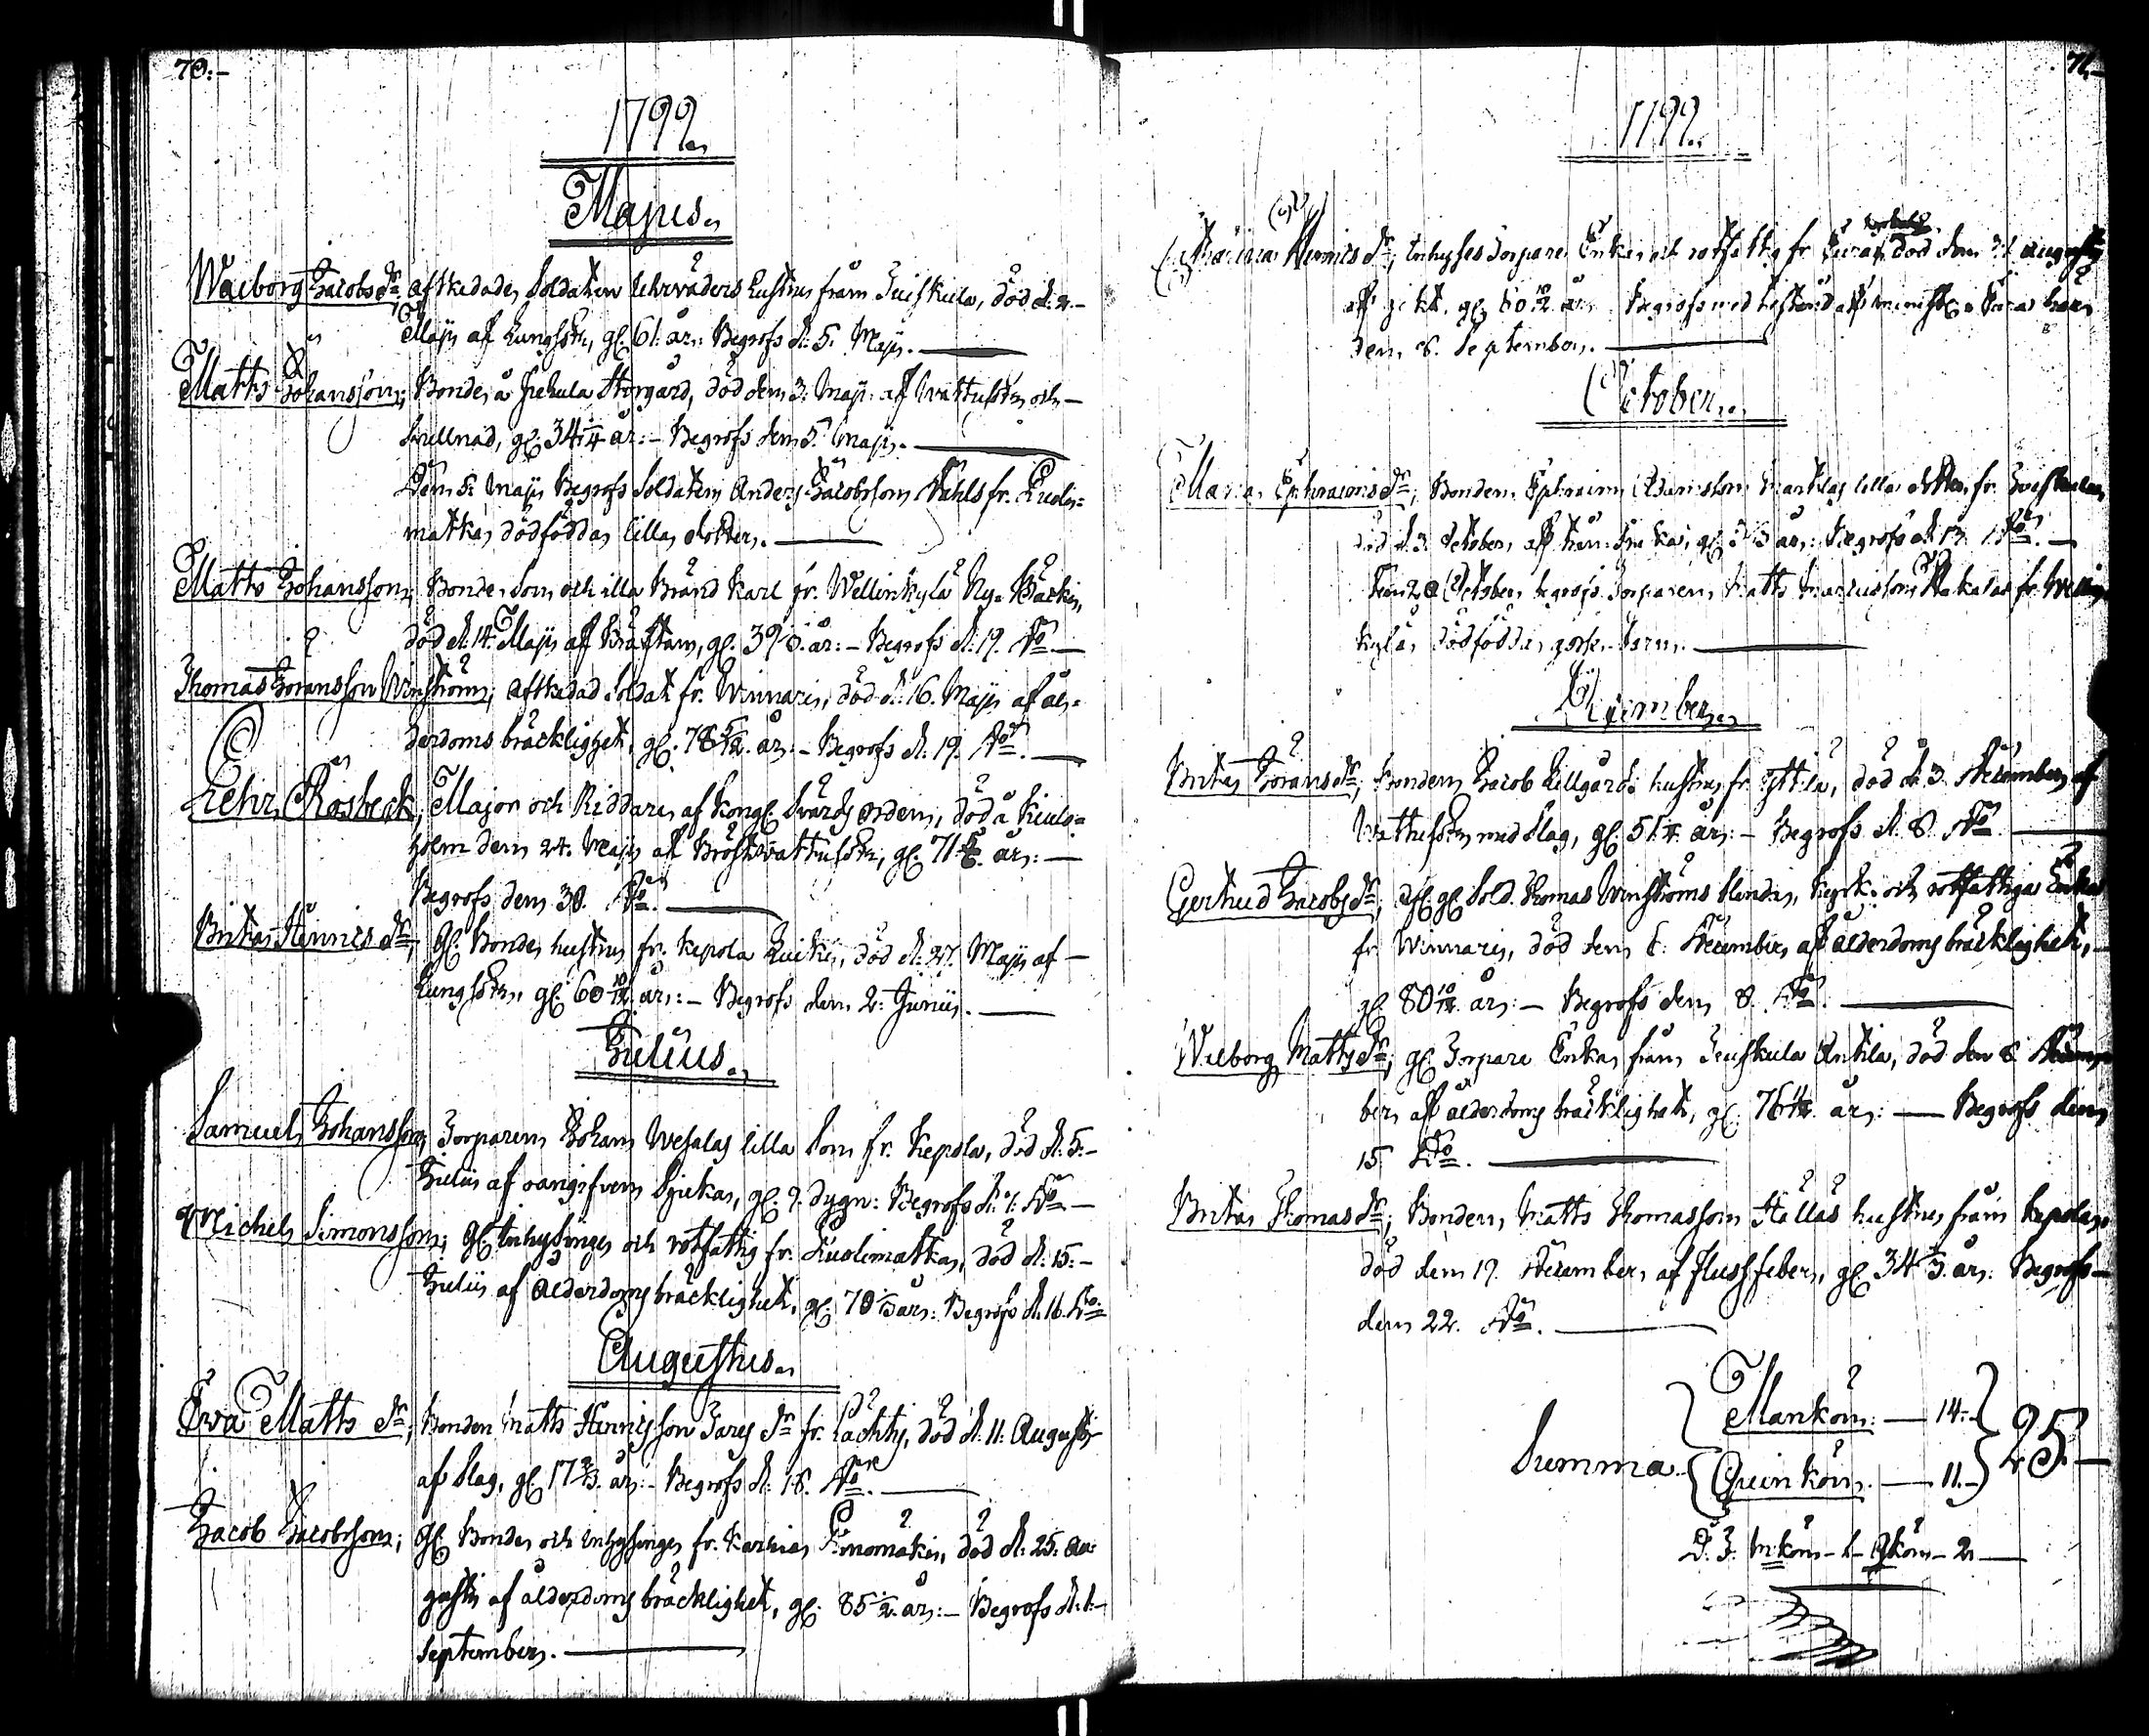 70:-
1799.
Majus.
Walborg Jacobs Dr. afskedade Soldaten Uhrväders hustru från Juskula, död d. 2.-
Maji af Lungsot, gl. 61. år: Begrofs d. 5. Maji.
Matts Johansson; Bonde, å Storgård, död dem 3. Maji af Wattusot och-
svullnad, gl. 34 1/4 år:- Begrofs dem 5. Maji.
Dem 5. Maji Begrofs Soldaten Anders Jacobsson Ståhls fr. Kuoli=
matka dödfödda lilla dotter.
Matts Johansson; Bonde Son och illa Bränd Karl fr. Wellinkylä Ny= Bäcki,
död d. 14. Maji af Kräftan, gl. år:- Begrofs d. 19. Do.-
Thomas Göransson Winström; afskedad Soldat fr. Winnaris, död d. 16. Maji af ål=
derdoms bräcklighet, gl. 78 5/12. år:- Begrofs d. 19. Do.
Rosbeck, Major och Riddare af Kongl. Svärds orden, död å Kiulo=
holm dem 24. Maji af Bröstwattusot, gl. 71 5/6. år:-
Begrofs dem 30. Do.
Brita Hinrics Dr; gl. Bonde hustru fr. Kepola död d. 27. Maji af-
Lungsot, gl. 60 10/12. år:- Begrofs dem 2. Junii.
Julius.
Samuel Johansson, Torparen Johan Wesalas lilla Son fr. Kepola, död d. 5.-
Julii af oangifven Sjuka, gl. 9. dygn: Begrofs d. 7. Do.-
Michel Simonsson; gl. Inhysinge och rotfattig fr. Kuolimatka, död d. 15.-
Julii af ålderdoms bräcklighet, gl. 70 1/3 år: Begrofs d. 16. Do.
Augustus.
Eva Matts Dr; Bonden Matts Hinricsson Jarys Dr fr. Lachty, död d. 11. Augusti
af Slag, gl. 17 2/3. år:- Begrofs d. 18. Do.
Jacob Jacobsson; gl. Bonde och inhysinge fr. Karhia död d. 25. Au=
gusti af ålderdoms bräcklighet, gl. 85 1/2. år:- Begrofs d. 1.-
September.
71.-
1799.
Hinrics Dr; Inhyses Torpare Enka och rotfattig fr. död dem 31 Augusti
af gikt, gl. 60 10/12 år: Begrofs
dem 8. September.
October.
Maria Ephraims Dr; Bonden Ephraim lilla dotter fr. Juskula,
död d. 3. October, af gl. år: Begrofs d. 13. Do.-
Dem 20 October begrofs Torparen Matts fr. Wellin
kylä dödfödda gosse-barn.
December.
Brita Görans Dr; Bonden Jacob Lillgårds hustru fr. död d. 3. December af
Wattusot med Slag, gl. 51 1/4. år:- Begrofs d. 8. Do.
Gertrud Jacobs Dr; afl. gl. Sold. Thomas Winströms blinda, Kyrk- och rotfattiga Enka
fr. Winnaris, död dem 6. December, af ålderdoms bräcklighet,-
gl. 80 10/12. år:- Begrofs dem 8. Do.
Walborg Matts Dr; gl. Torpare Enka från Juskula Antila, död dem 8. Decem=
ber, af ålderdoms bräcklighet, gl. 76 11/12. år:- Begrofs dem
15. Do.
Brita Thomas Dr; Bonden Matts Thomasson hustru från Kepola,
död dem 19. December, af flussfeber, gl. 34 år: Begrofs-
dem 22. Do.
Summa
Mankön:- 14.-
Qvinkön.- 11.-
25.-
D. F. M:kön- 1- Q:kön- 2-